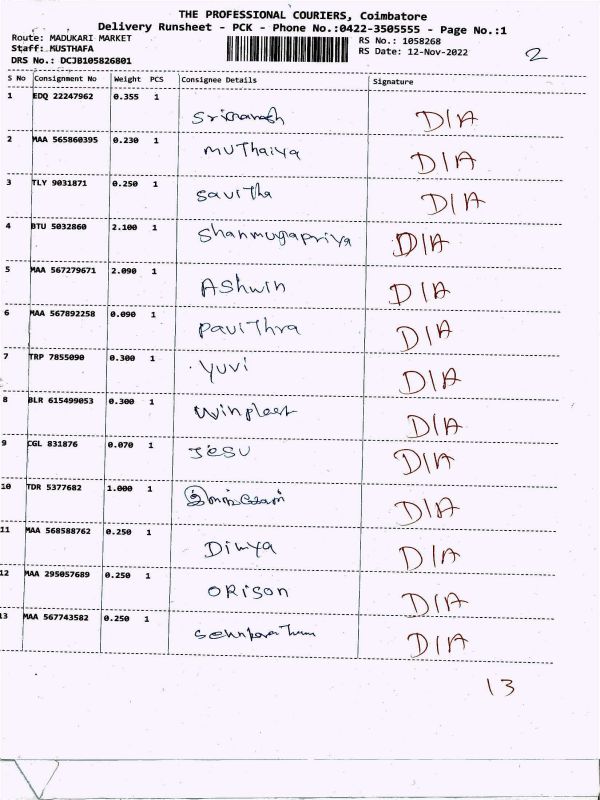 THE PROFESSIONAL COURIERS, Coimbatore
Delivery Runsheet - PCK - Phone No.:0422-3505555 - Page No.:1
Route: MADUKARI MARKET RS No.: 1058268
Staff: MUSTHAFA RS Date: 12-Nov-2022 2
DRS No.: DCJB105826801
S No Consignment No Weight PCS Consignee Details Signature
1 EDQ 22247962 0.355 1 D/A
2 MAA 565860395 0.230 1 muThaiya D/A
3 TLY 9031871 0.250 1 saviTha D/A
4 BTU 5032860 2.100 1 Shanmugapriya D/A
5 MAA 567279671 2.090 1 AShwin D/A
6 MAA 567892258 0.090 1 paviThra D/A
7 TRP 7855090 0.300 1 yuvi D/A
8 BLR 615499053 0.300 1 D/A
9 CGL 831876 0.070 1 JESU D/A
10 TDR 5377682 1.000 1 D/A
11 MAA 568588762 0.250 1 Divya D/A
12 MAA 295057689 0.250 1 ORison D/A
13 MAA 567743582 0.250 1 D/A
13